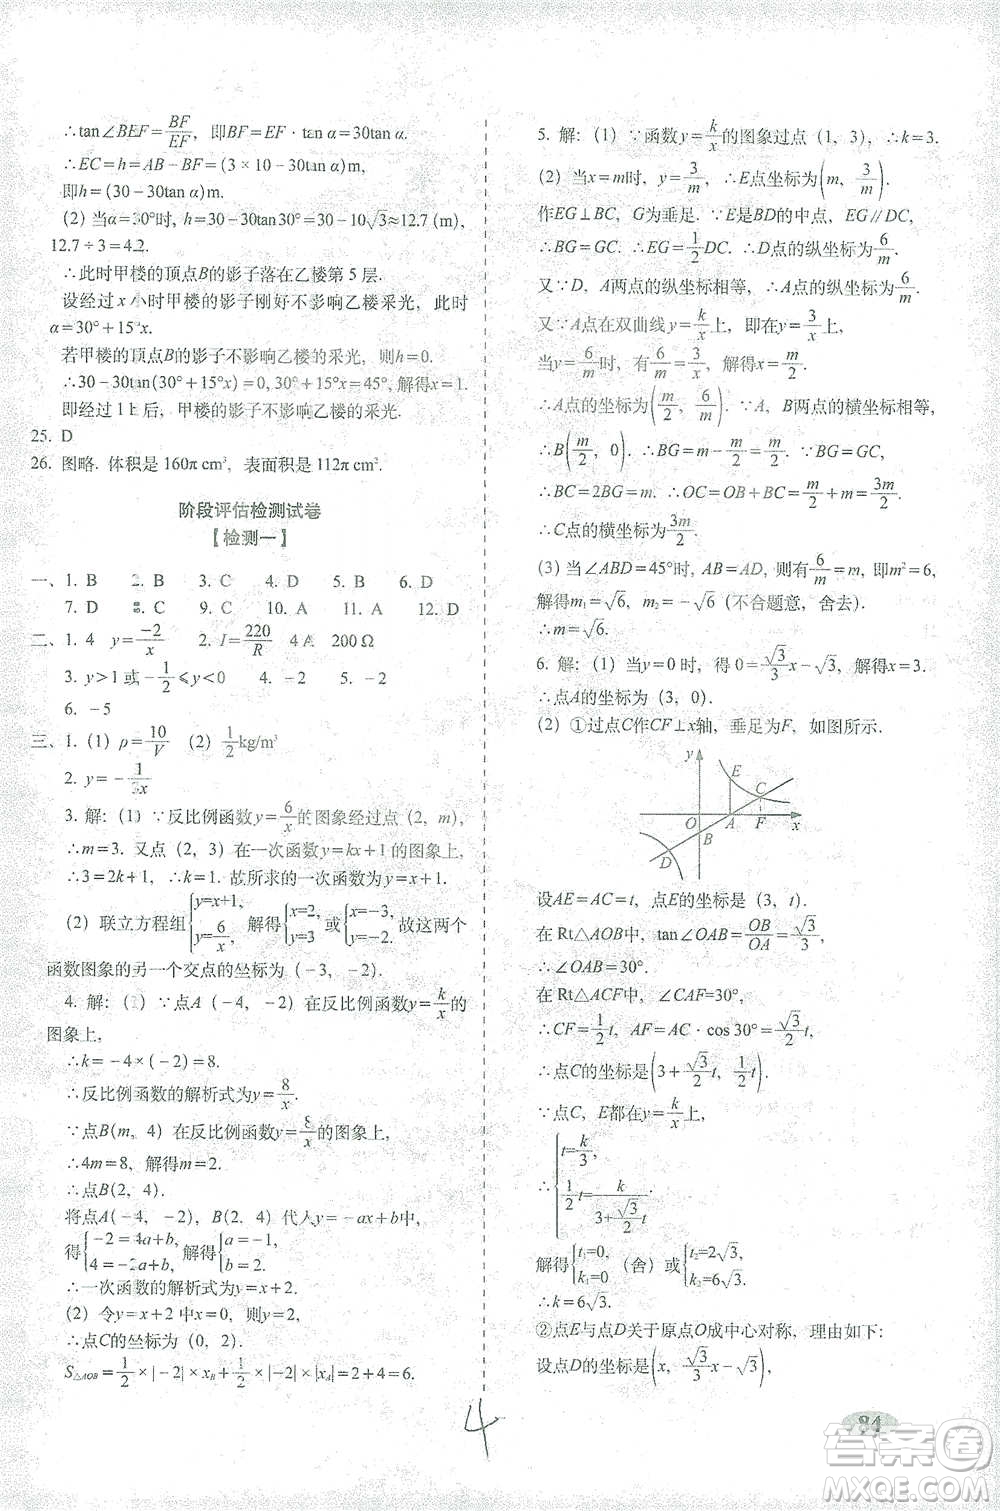 ∴tan∠BEF=BF/EF, 即BF=EF·tan α=30tan α.
∴EC=h=AB-BF=(3×10-30tan α)m.
即h=(30-30tan α)m.
(2) 当α=30°时, h=30-30tan30°=30-10√3≈12.7 (m),
12.7÷3=4.2.
∴此时甲楼的顶点B的影子落在乙楼第 5 层.
设经过 x 小时甲楼的影子刚好不影响乙楼采光, 此时
α=30°+15°x.
若甲楼的顶点B的影子不影响乙楼的采光, 则h=0.
∴30-30tan(30°+15°x)=0, 30°+15°x=45°, 解得x=1.
即经过 1 h后, 甲楼的影子不影响乙楼的采光.
25. D
26. 图略. 体积是 160π cm³, 表面积是 112π cm².
阶段评估检测试卷
【检测一】
一、1. B 2. B 3. C 4. D 5. B 6. D
7. D 9. C 10. A 11. A 12. D
二、1. 4 y=-2/x 2. I=220/R 4 A 200 Ω
3. y>1 或-1/2≤y<0 4. -2 5. -2
6. -5
三、1. (1) ρ=10/V (2) 1/2 kg/m³
2. y=-1/3x
3. 解: (1) ∵反比例函数y=6/x的图象经过点 (2, m),
∴m=3. 又点 (2, 3) 在一次函数y=kx+1的图象上,
∴3=2k+1, ∴k=1. 故所求的一次函数解析式为y=x+1.
(2) 联立方程组{y=x+1, y=6/x, 解得{x=2, y=3或{x=-3, y=-2. 故这两个
函数图象的另一个交点的坐标为 (-3, -2).
4. 解: (1) ∵点A (-4, -2) 在反比例函数y=k/x的
图象上,
∴k=-4×(-2)=8.
∴反比例函数的解析式为y=8/x.
∵点B(m, 4) 在反比例函数y=8/x的图象上,
∴4m=8, 解得m=2.
∴点B(2, 4).
将点A(-4, -2), B(2, 4) 代入y=-ax+b中,
得{-2=4a+b, 4=-2a+b, 解得{a=-1, b=2.
∴一次函数的解析式为y=x+2.
(2) 令y=x+2 中x=0, 则y=2.
∴点C的坐标为 (0, 2).
S△AOB=1/2×|-2|×xB+1/2×|-2|×|xA|=2+4=6.
5. 解: (1) ∵函数y=k/x的图象过点 (1, 3), ∴k=3.
(2) 当x=m时, y=3/m, ∴E点坐标为(m, 3/m).
作EG⊥BC, G为垂足. ∵E是BD的中点, EG∥DC,
∴BG=GC, ∴EG=1/2DC. ∴D点的纵坐标为6/m.
又∵D, A两点的纵坐标相等, ∴A点的纵坐标为6/m.
又∵A点在双曲线y=k/x上, 即在y=3/x上,
当y=6/m时, 有6/m=3/x, 解得x=m/2.
∴A点的坐标为(m/2, 6/m). ∵A, B两点的横坐标相等,
∴B(m/2, 0). ∴BG=m-m/2=m/2.
∴BC=2BG=m. ∴OC=OB+BC=m/2+m=3m/2.
∴C点的横坐标为3m/2.
(3) 当∠ABD=45°时, AB=AD, 则有6/m=m, 即m²=6,
解得m₁=√6, m₂=-√6 (不合题意, 舍去).
∴m=√6.
6. 解: (1) 当y=0 时, 得 0=√3/3x-√3, 解得x=3.
∴点A的坐标为 (3, 0).
(2) ①过点C作CF⊥x轴, 垂足为F, 如图所示.
y
E
C
O
A
F
x
B
D
设AE=AC=t, 点E的坐标是 (3, t).
在 Rt△AOB中, tan∠OAB=OB/OA=√3/3,
∴∠OAB=30°.
在 Rt△ACF中, ∠CAF=30°,
∴CF=1/2t, AF=AC·cos 30°=√3/2t,
∴点C的坐标是(3+√3/2t, 1/2t).
∵点C, E都在y=k/x上,
∴{t=k/3, 1/2t=k/(3+√3/2t).
解得{t₁=0, k₁=0 (舍) 或{t₂=2√3, k₂=6√3.
∴k=6√3.
②点E与点D关于原点O成中心对称, 理由如下:
设点D的坐标是(x, √3/3x-√3),
84
4
答案圈
MXQE.COM